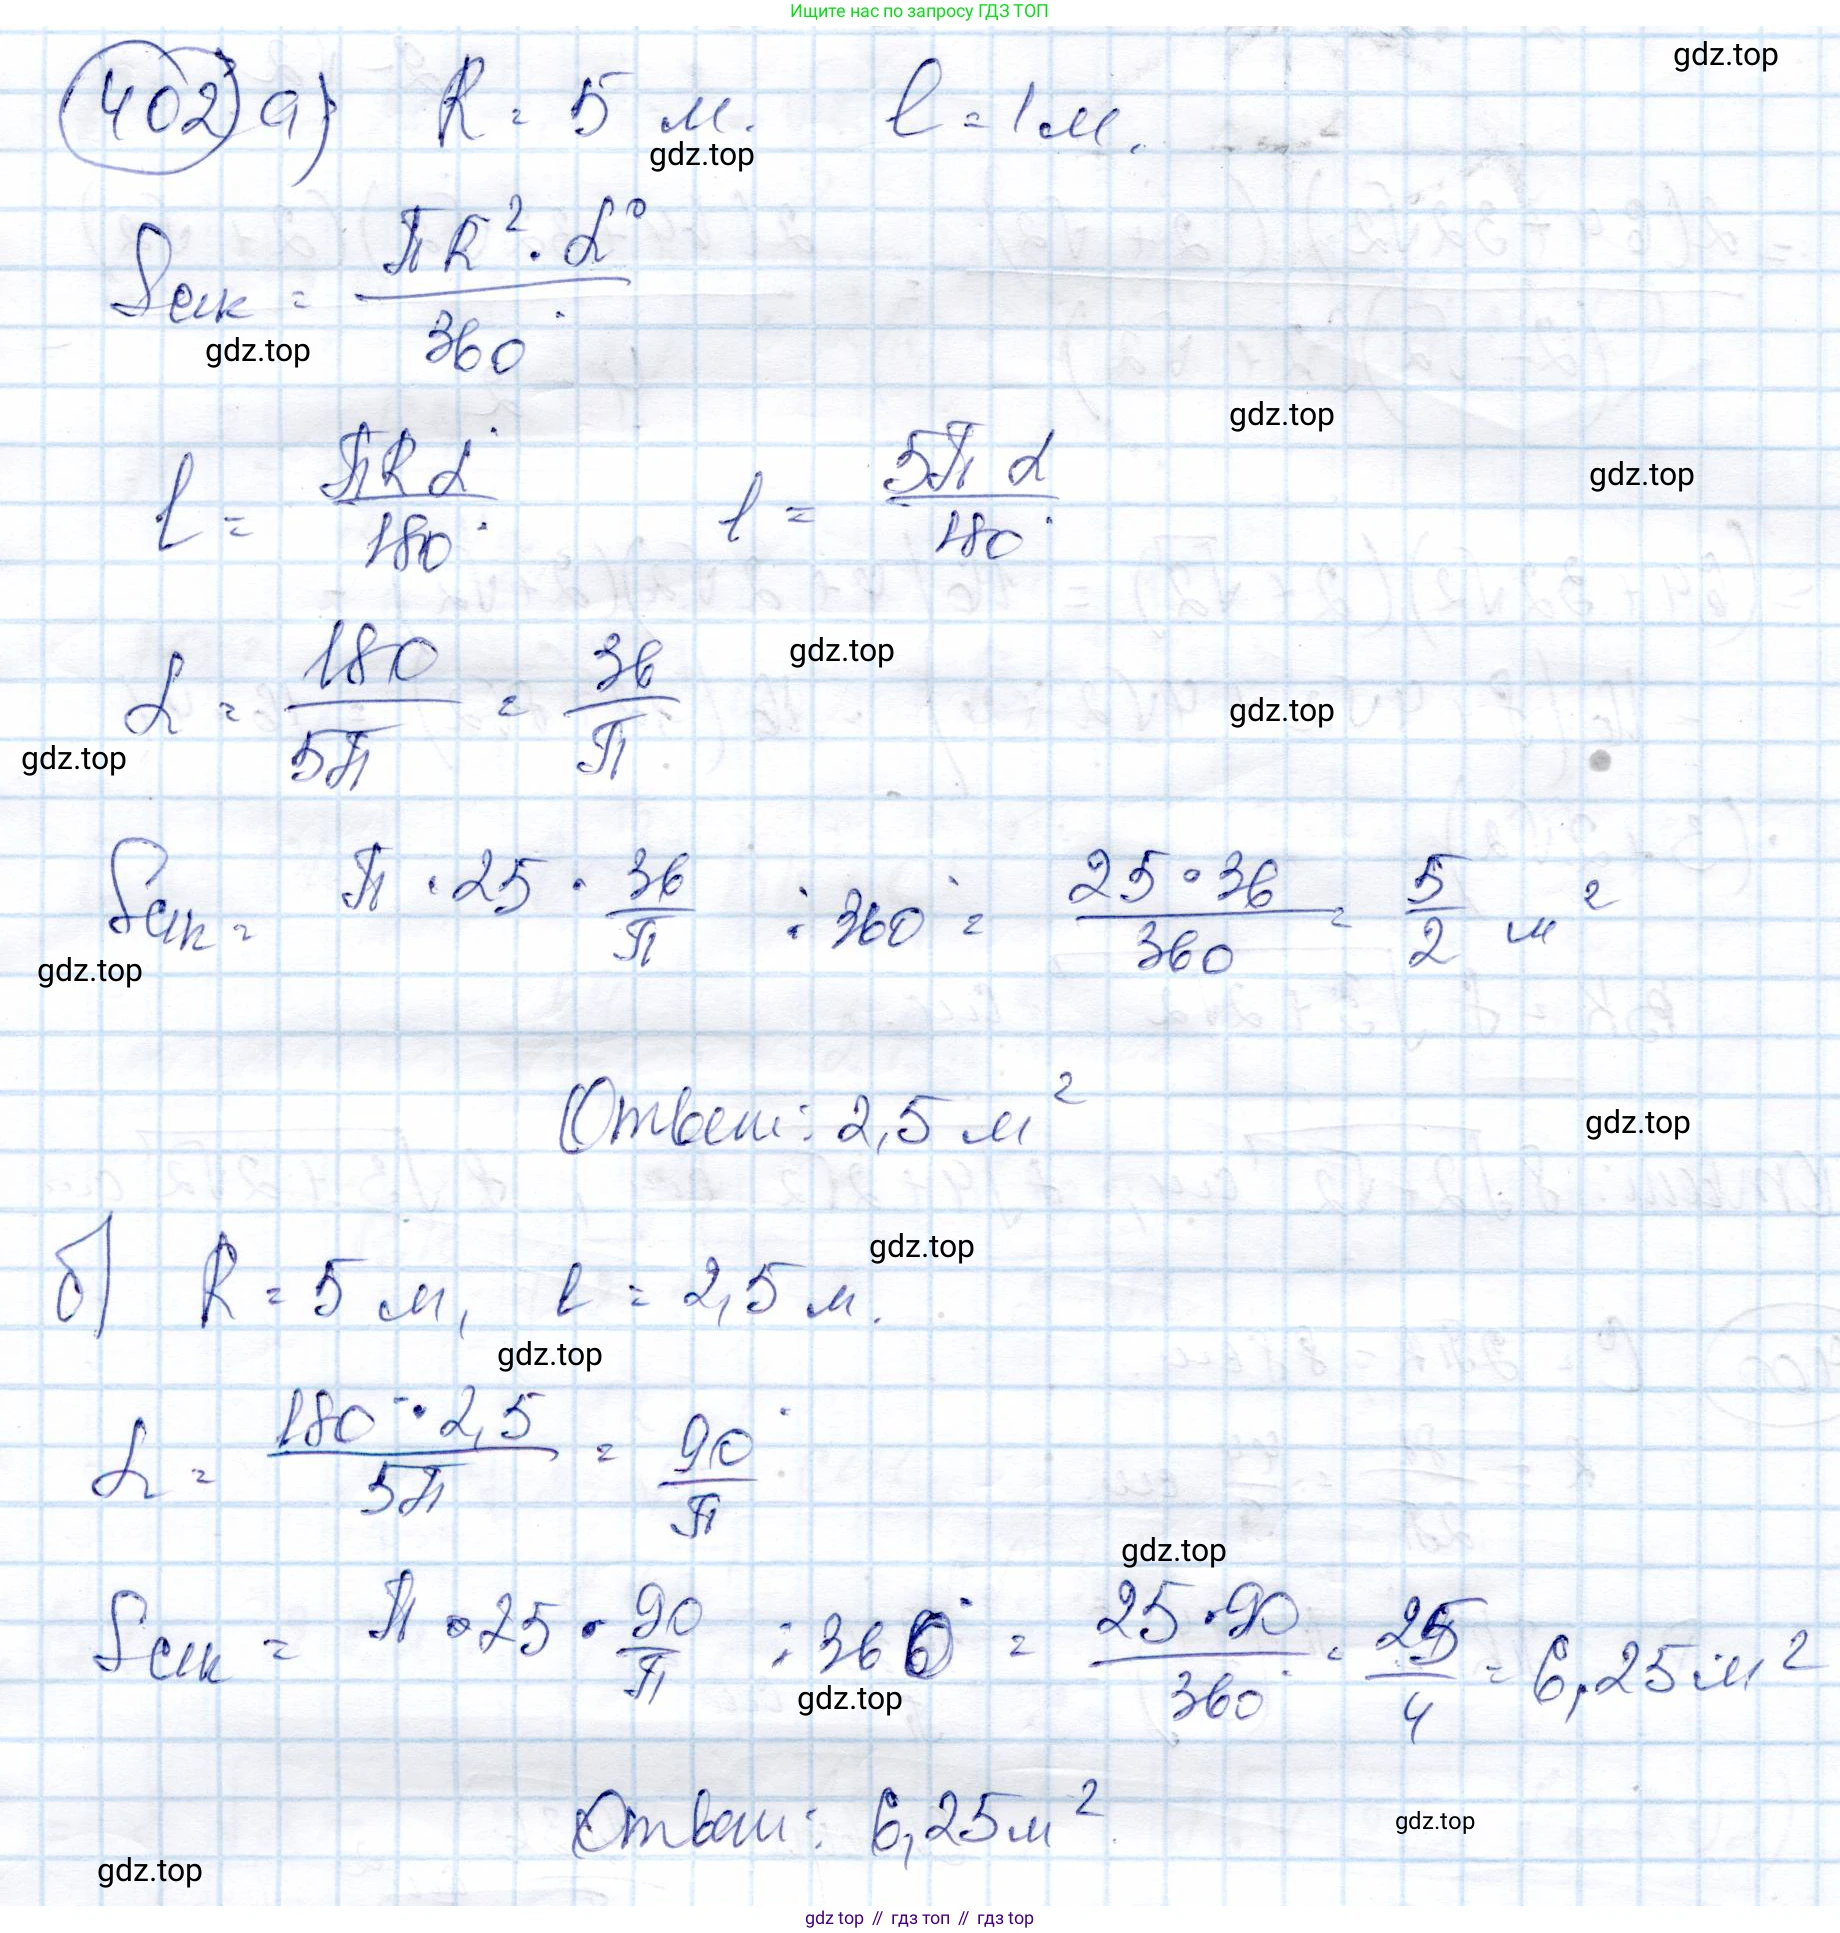 Ищите нас по запросу ГДЗ ТОП
gdz.top
402 а) R = 5 м. l = 1 м.
gdz.top
Sсек = πR² · α° / 360°
gdz.top
gdz.top
l = πRα° / 180° l = 5πα / 180°
gdz.top
α = 180 / 5π = 36 / π
gdz.top
gdz.top
gdz.top
Sсек = π · 25 · 36/π : 360° = 25 · 36 / 360 = 5/2 м²
gdz.top
Ответ: 2,5 м²
gdz.top
gdz.top
б) R = 5 м, l = 2,5 м.
gdz.top
α = 180° · 2,5 / 5π = 90° / π
gdz.top
Sсек = π · 25 · 90/π : 360° = 25 · 90 / 360° = 25/4 = 6,25 м²
gdz.top
Ответ: 6,25 м².
gdz.top
gdz.top
gdz top // гдз топ // гдз top